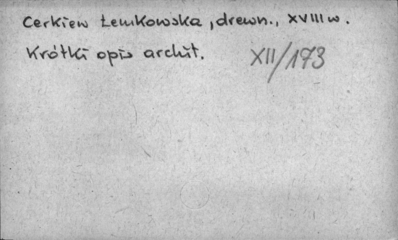 Cerkiew Łemkowska, drewn., XVIII w.
Krótki opis archit.
XII/173